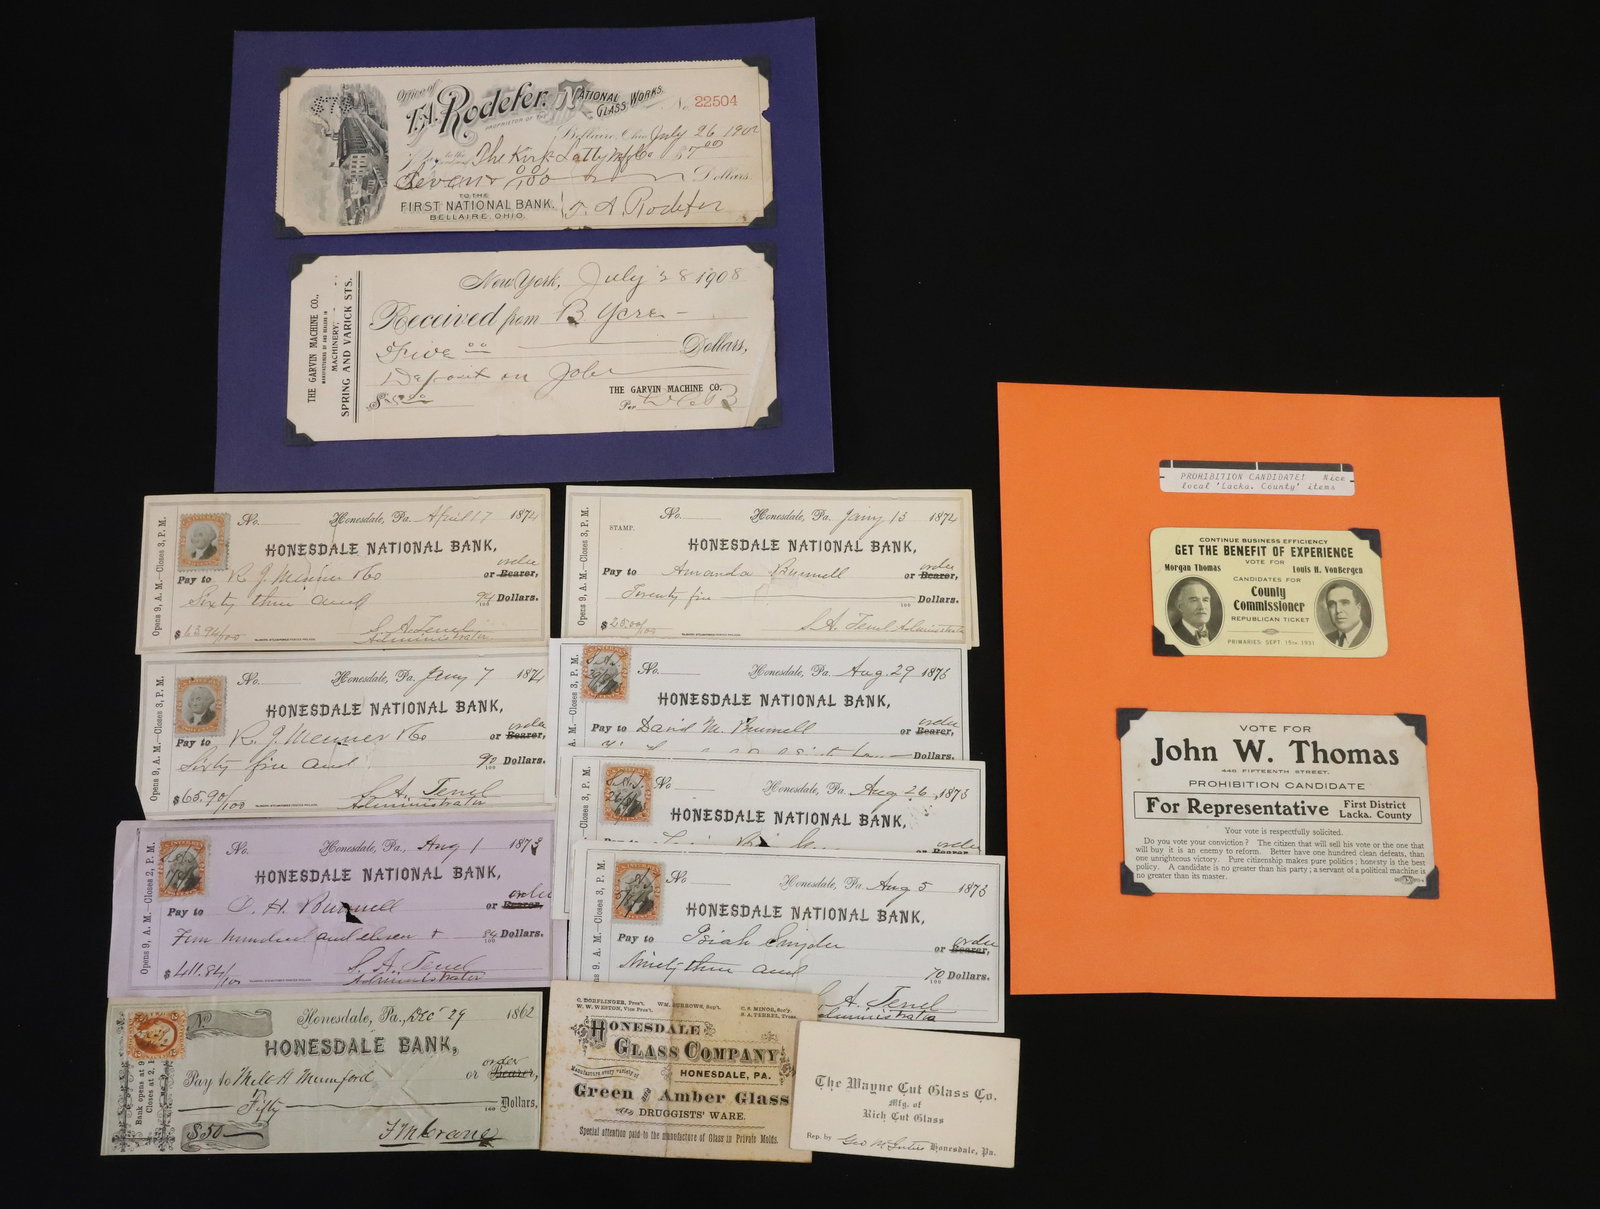 Office of
T.A. Rodefer.
PROPRIETOR OF THE
NATIONAL GLASS WORKS.
No. 22504
Bellaire, Ohio, July 26 190
Pay to the
The Kirk Latty Mfg Co $7.00
Seven & 00/100 Dollars
TO THE
FIRST NATIONAL BANK.
BELLAIRE, OHIO.
T. A. Rodefer
THE GARVIN MACHINE CO.,
MANUFACTURERS OF AND DEALERS IN
MACHINERY.
SPRING AND VARICK STS.
New York, July 28 1908
Received from B.
Five 00 Dollars,
Deposit on
THE GARVIN MACHINE CO.
$5.00
Per
Opens 9, A. M.—Closes 3, P. M.
No. Honesdale, Pa. April 17 1874
HONESDALE NATIONAL BANK,
Pay to R. J. Menner & Co or Bearer, order
Sixty three and 94/100 Dollars.
$63.94/100
Administrator
Opens 9, A. M.—Closes 3, P. M.
STAMP.
No. Honesdale, Pa. Jany 13 1874
HONESDALE NATIONAL BANK,
Pay to Amanda Bunnell or Bearer, order
Twenty five /100 Dollars.
$25.00/100
S. A. Terrel Administrator
Opens 9, A. M.—Closes 3, P. M.
No. Honesdale, Pa. Jany 7 1874
HONESDALE NATIONAL BANK,
Pay to R. J. Menner & Co or Bearer, order
Sixty five and 90/100 Dollars.
$65.90/100
S. A. Terrel
Administrator
A. M.—Closes 3, P. M.
S.A.T.
No. Honesdale, Pa. Aug. 29 187
HONESDALE NATIONAL BANK,
Pay to David M. Bunnell or Bearer, order
Dollars.
Closes 3, P. M.
S.A.T.
No. Honesdale, Pa. Aug 26, 1873
HONESDALE NATIONAL BANK,
or Bearer, order
Opens 9, A. M.—Closes 2, P. M.
No. Honesdale, Pa., Aug 1 1873
HONESDALE NATIONAL BANK,
Pay to Bunnell or Bearer, order
Four hundred and eleven & 84/100 Dollars.
$411.84/100
S. A. Terrel
Administrator
9, A. M.—Closes 3, P. M.
No. Honesdale, Pa. Aug 5 1873
HONESDALE NATIONAL BANK,
Pay to Isiah Snyder or Bearer, order
Ninety three and 70/100 Dollars.
S. A. Terrel
Administrator
Bank opens at 9
Closes at 2,
No. Honesdale, Pa., Dec 29 1862
HONESDALE BANK,
Pay to Milo A Mumford or Bearer, order
Fifty /100 Dollars,
$50
C. DORFLINGER, Pres't.
W. W. WESTON, Vice Pres't.
WM. BURROWS, Sup't.
C. S. MINOR, Sec'y.
S. A. TERREL, Treas.
HONESDALE
GLASS COMPANY
Manufacture every variety of
HONESDALE, PA.
Green and Amber Glass
AND DRUGGISTS' WARE.
Special attention paid to the manufacture of Glass in Private Molds.
The Wayne Cut Glass Co.
Mfg. of
Rich Cut Glass
Rep. by Honesdale, Pa.
PROHIBITION CANDIDATE! Nice
local 'Lacka. County' items
CONTINUE BUSINESS EFFICIENCY
GET THE BENEFIT OF EXPERIENCE
VOTE FOR
Morgan Thomas Louis H. VonBergen
CANDIDATES FOR
County
Commissioner
REPUBLICAN TICKET
PRIMARIES, SEPT. 15TH, 1931
VOTE FOR
John W. Thomas
446 FIFTEENTH STREET.
PROHIBITION CANDIDATE
For Representative First District Lacka. County
Your vote is respectfully solicited.
Do you vote your conviction? The citizen that will sell his vote or the one that
will buy it is an enemy to reform. Better have one hundred clean defeats, than
one unrighteous victory. Pure citizenship makes pure politics; honesty is the best
policy. A candidate is no greater than his party; a servant of a political machine is
no greater than its master.